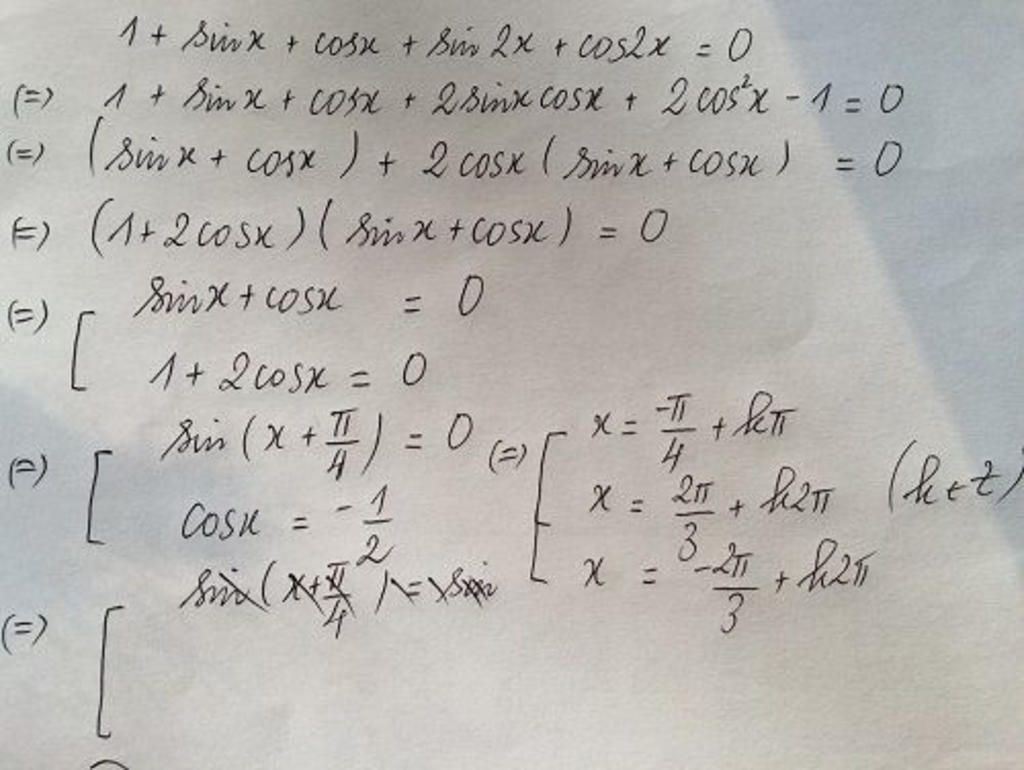 1 + sinx + cosx + sin 2x + cos2x = 0
(=) 1 + sinx + cosx + 2sinxcosx + 2cos²x - 1 = 0
(=) (sinx + cosx) + 2cosx (sinx + cosx) = 0
(=) (1+2cosx)(sinx+cosx) = 0
(=) [ sinx + cosx = 0
1 + 2cosx = 0
(=) [ sin(x + π/4) = 0 (=) [ x = -π/4 + kπ
cosx = -1/2 x = 2π/3 + k2π (k∈Z)
sin(x+π/4) = sin x = -2π/3 + k2π
(=) [